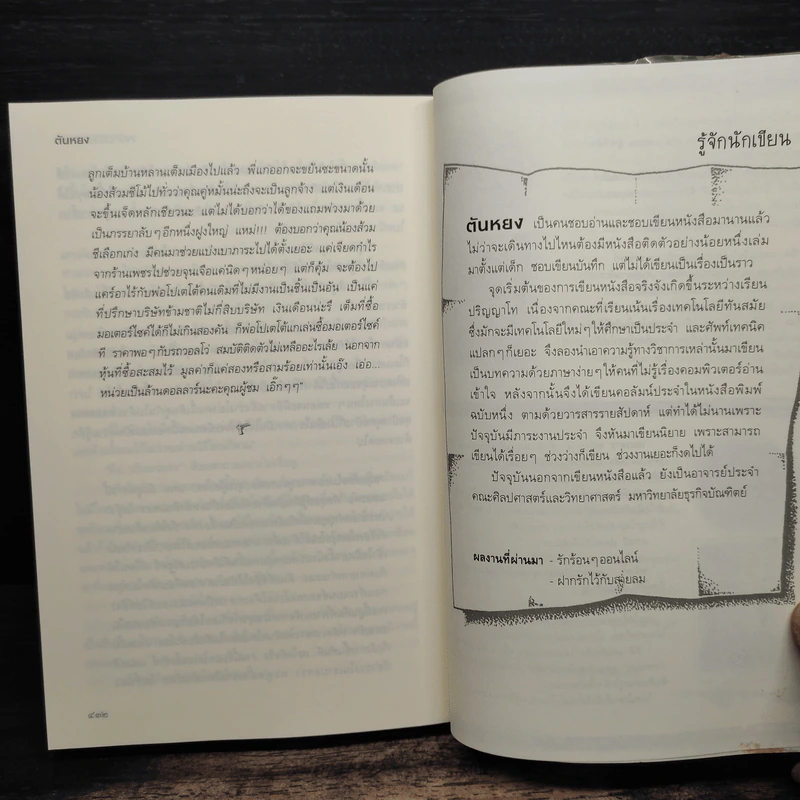 ตันหยง
ลูกเต็มบ้านหลานเต็มเมืองไปแล้ว พี่แกออกจะขยันซะขนาดนั้น
น้องส้วมซีโม้ไปทั่วว่าคุณคู่หมั้นน่ะถึงจะเป็นลูกจ้าง แต่เงินเดือน
จะขึ้นเจ็ดหลักเชียวนะ แต่ไม่ได้บอกว่าได้ของแถมพ่วงมาด้วย
เป็นภรรยาลับๆ อีกหนึ่งฝูงใหญ่ แหม!!! ต้องบอกว่าคุณน้องส้วม
ซีเลือกเก่ง มีคนมาช่วยแบ่งเบาภาระไปได้ตั้งเยอะ แค่เจียดกำไร
จากร้านเพชรไปช่วยจุนเจือแค่นิดๆ หน่อยๆ แต่ก็คุ้ม จะต้องไป
แคร์อาไร้กับพ่อโปเตโต้คนเดิมที่ไม่มีงานเป็นชิ้นเป็นอัน เป็นแค่
ที่ปรึกษาบริษัทข้ามชาติไม่กี่สิบบริษัท เงินเดือนน่ะรึ เต็มที่ซื้อ
มอเตอร์ไซค์ได้ก็ไม่เกินสองคัน ก็พ่อโปเตโต้แกเล่นซื้อมอเตอร์ไซค์
ที ราคาพอๆ กับรถวอลโว่ สมบัติติดตัวไม่เหลืออะไรเล้ย นอกจาก
หุ้นที่ซื้อสะสมไว้ มูลค่าก็แค่สองหรือสามร้อยเท่านั้นเอ๊ง เอ่อ...
หน่วยเป็นล้านดอลลาร์นะคะคุณผู้ชม เอิ๊กๆๆ"
๔๓๒
รู้จักนักเขียน
ตันหยง เป็นคนชอบอ่านและชอบเขียนหนังสือมานานแล้ว
ไม่ว่าจะเดินทางไปไหนต้องมีหนังสือติดตัวอย่างน้อยหนึ่งเล่ม
มาตั้งแต่เด็ก ชอบเขียนบันทึก แต่ไม่ได้เขียนเป็นเรื่องเป็นราว
จุดเริ่มต้นของการเขียนหนังสือจริงจังเกิดขึ้นระหว่างเรียน
ปริญญาโท เนื่องจากคณะที่เรียนเน้นเรื่องเทคโนโลยีทันสมัย
ซึ่งมักจะมีเทคโนโลยีใหม่ๆ ให้ศึกษาเป็นประจำ และศัพท์เทคนิค
แปลกๆ ก็เยอะ จึงลองนำเอาความรู้ทางวิชาการเหล่านั้นมาเขียน
เป็นบทความด้วยภาษาง่ายๆ ให้คนที่ไม่รู้เรื่องคอมพิวเตอร์อ่าน
เข้าใจ หลังจากนั้นจึงได้เขียนคอลัมน์ประจำในหนังสือพิมพ์
ฉบับหนึ่ง ตามด้วยวารสารรายสัปดาห์ แต่ทำได้ไม่นานเพราะ
ปัจจุบันมีภาระงานประจำ จึงหันมาเขียนนิยาย เพราะสามารถ
เขียนได้เรื่อยๆ ช่วงว่างก็เขียน ช่วงงานเยอะก็งดไปได้
ปัจจุบันนอกจากเขียนหนังสือแล้ว ยังเป็นอาจารย์ประจำ
คณะศิลปศาสตร์และวิทยาศาสตร์ มหาวิทยาลัยธุรกิจบัณฑิตย์
ผลงานที่ผ่านมา - รักร้อนๆ ออนไลน์
- ฝากรักไว้กับสายลม